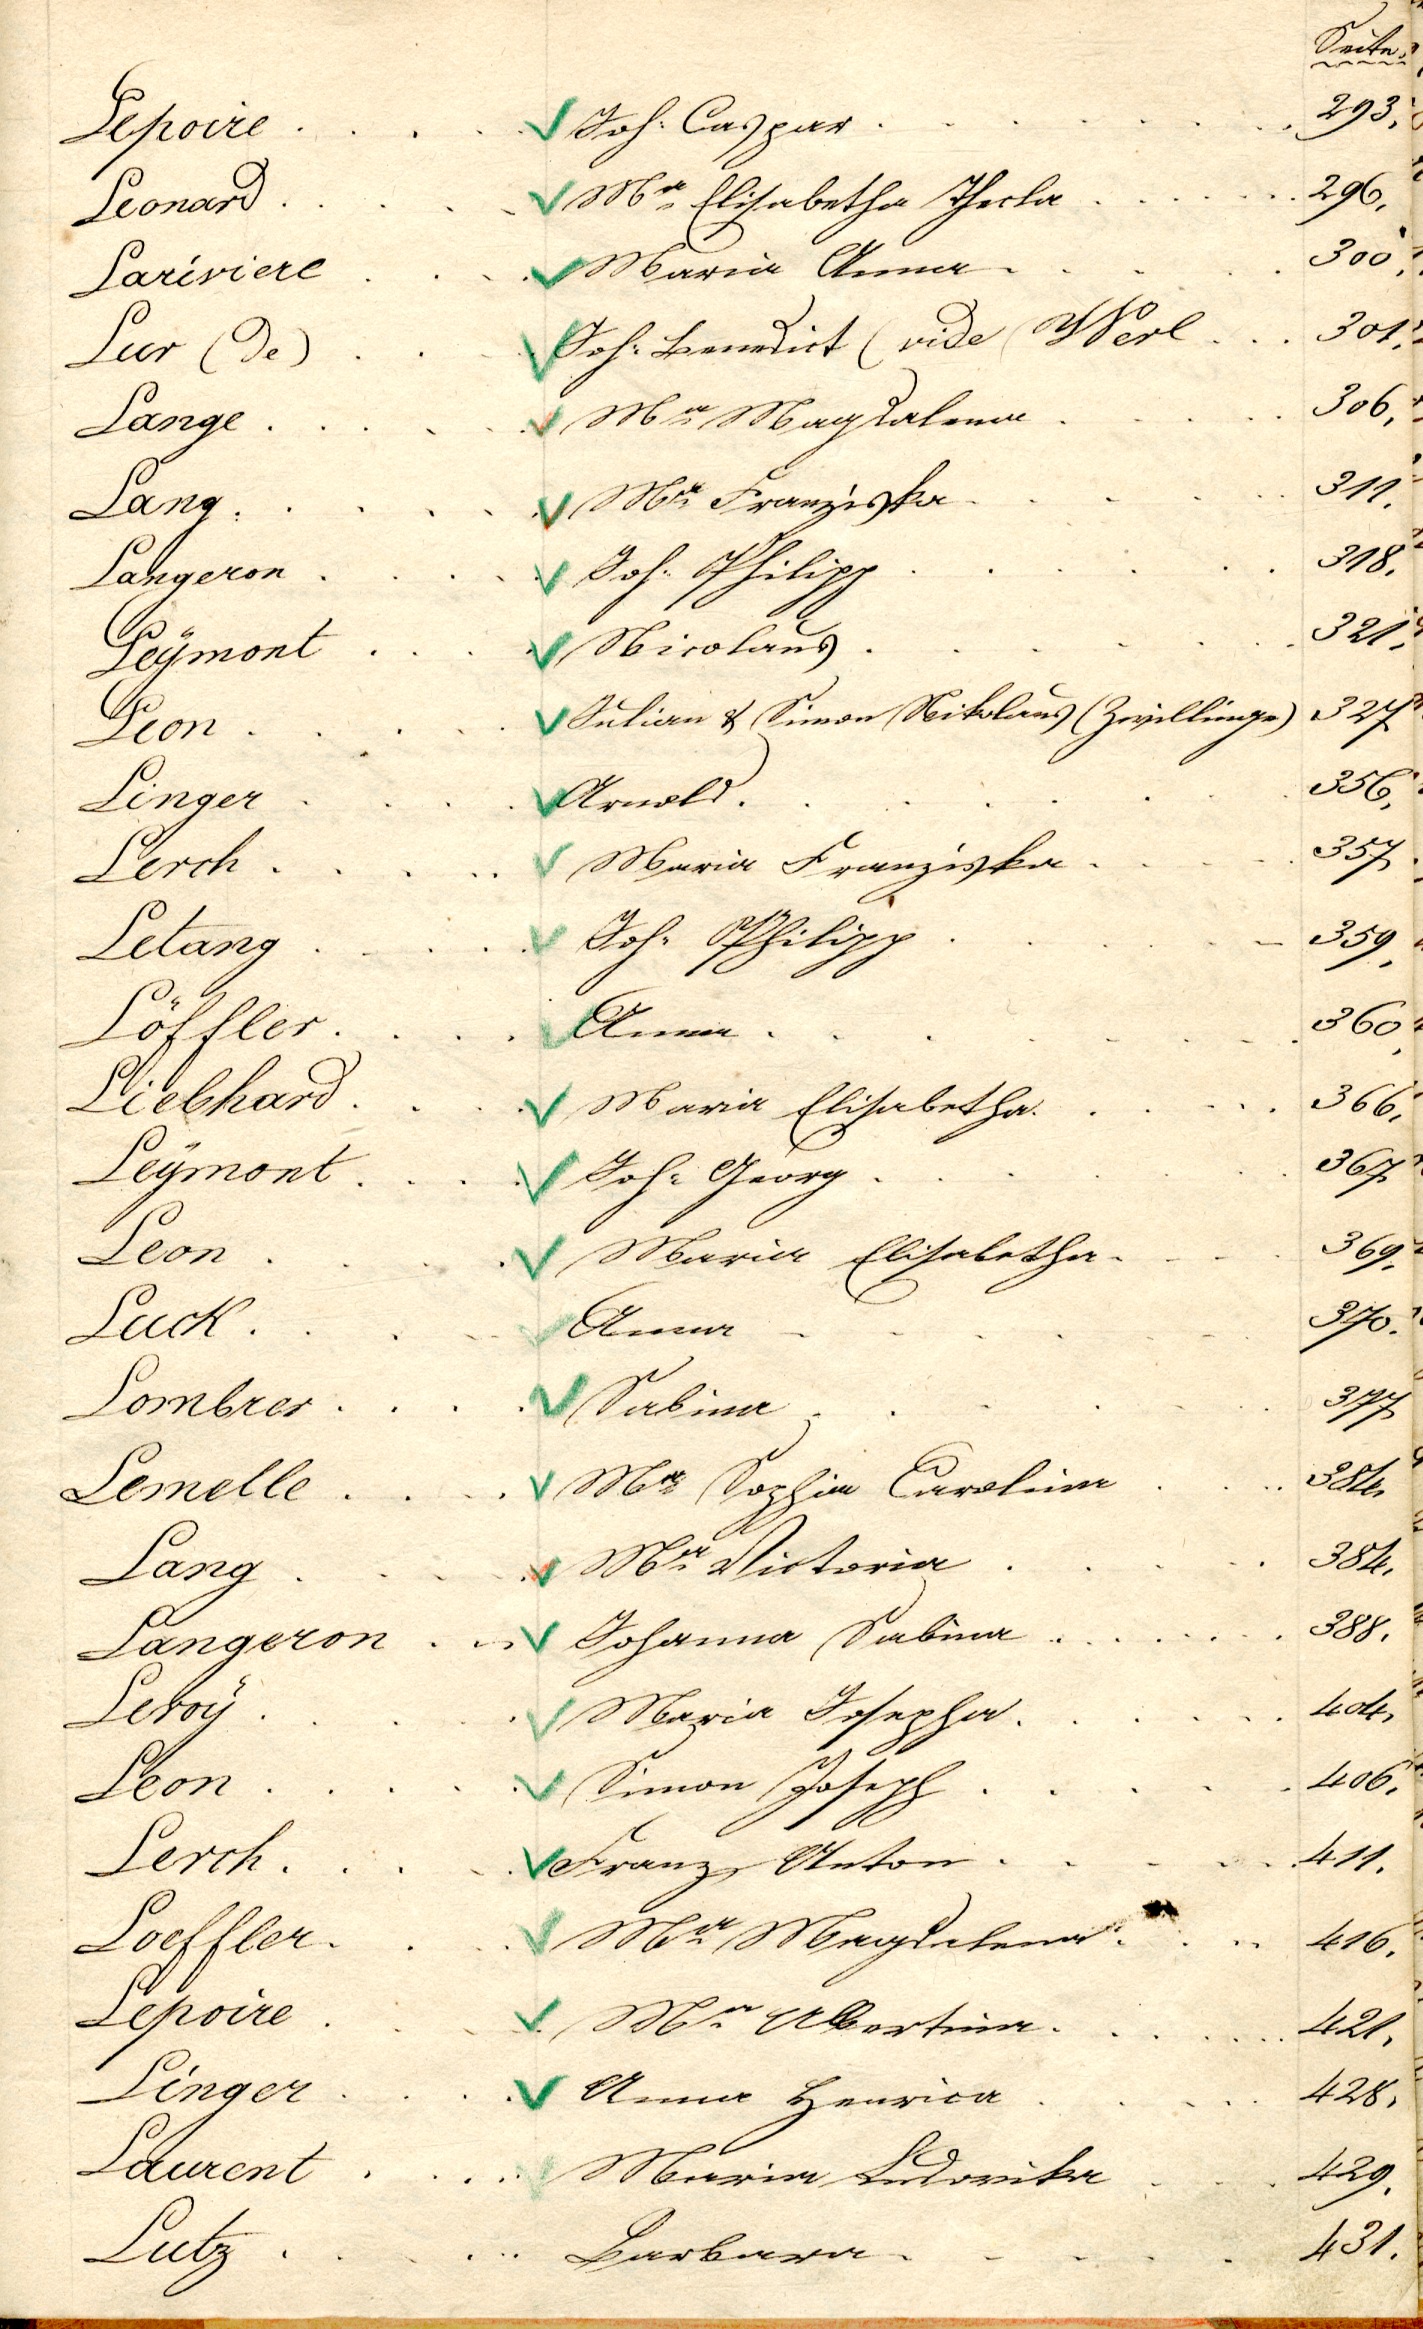 Seite.
Lepoire . . . . Joh: Caspar . . . . . . . 293.
Leonard . . . . . Mª Elisabetha Thecla . . . . . . 296.
Lariviere . . . Maria Anna . . . . . 300.
Lur (de) . . . Joh: Benedict (vide Werl . . . 301.
Lange . . . . . Mª Magdalena . . . . 306.
Lang . . . . . . Mª Franziska . . . . . 311.
Langeron . . . . Joh. Philipp . . . . . . 318.
Leÿmont . . . . Nicolaus . . . . . . 321.
Leon . . . . . Julian & Simon Nikolaus (Zwillinge) 327
Linger . . . . Arnold . . . . . . . 356.
Lerch . . . . . Maria Franziska . . . . . 357
Letang . . . . Joh: Philipp . . . . . . 359.
Löffler . . . . Anna . . . . . . . 360.
Liebhard . . . . Maria Elisabetha . . . . . 366.
Leÿmont . . . . Joh: Georg . . . . . . 367
Leon . . . . . Maria Elisabetha . . . . 369.
Luck . . . . Anna . . . . . . . 370.
Lombrer . . . . Sabina . . . . . . 377
Lemelle . . . . Mª Sophia Carolina . . . 384.
Lang . . . . Mª Victoria . . . . 384.
Langeron . . . Johanna Sabina . . . . . . . 388.
Leroÿ . . . . . Maria Josepha . . . . . . 404.
Leon . . . . . Simon Joseph . . . . . . 406.
Lerch . . . . Franz Anton . . . . . . 411.
Loeffler . . . . Mª Magdalena . . . . 416.
Lepoire . . . . Mª Albertina . . . . . . 421.
Linger . . . . Anna Henrica . . . . . 428.
Laurent . . . . Maria Ludovika . . . 429.
Lutz . . . . . Barbara . . . . . . 431.